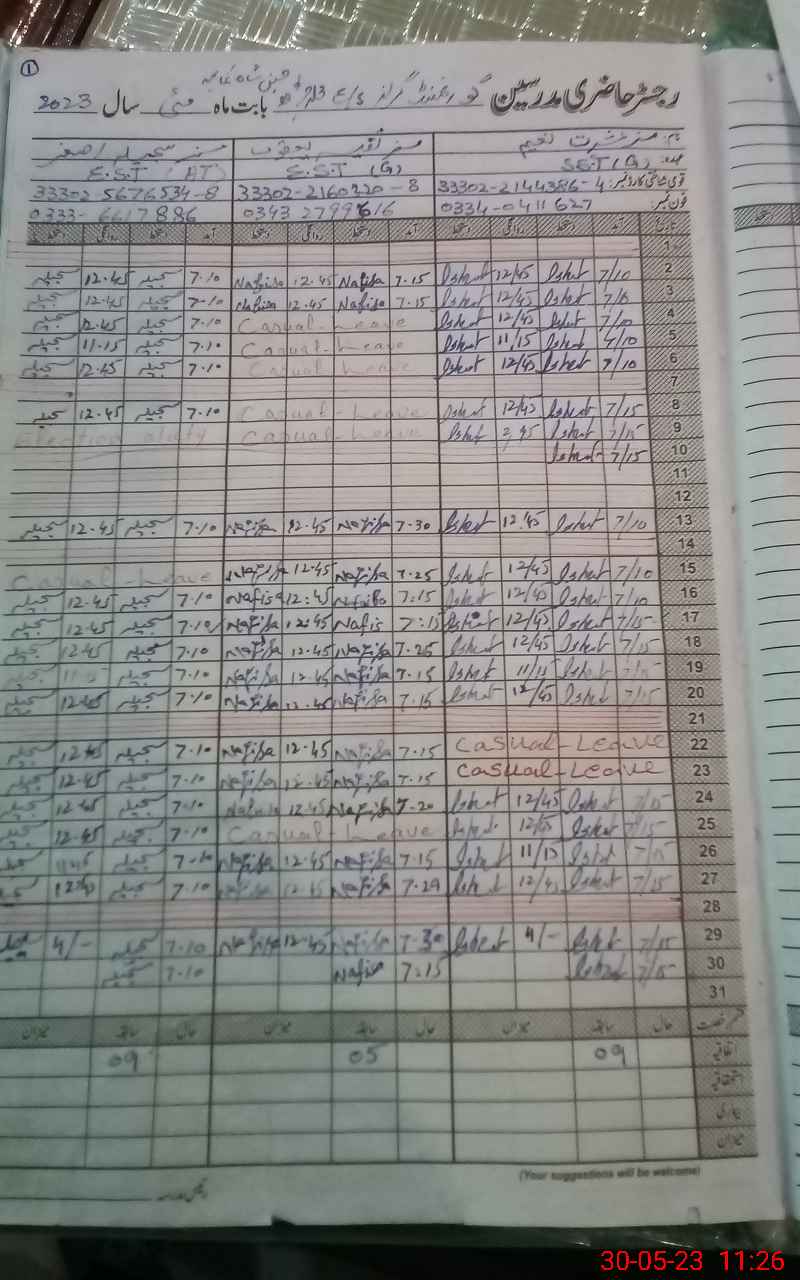 1
رجسٹر حاضری مدرسین گورنمنٹ گرلز بابت ماہ مئی سال 2023
نام: مسز عشرت نعیم
عہدہ: S.E.T (G) E.S.T (G) E.S.T (AT)
قومی شناختی کارڈ نمبر: 33302-2144386-4 33302-2160320-8 33302 5676534-8
فون نمبر: 0334-0411627 0343 2799616 0333-6617886
تاریخ آمد دستخط روانگی دستخط آمد دستخط روانگی دستخط آمد دستخط روانگی دستخط
1
2 7/10 Ishrat 12/45 Ishrat 7.15 Nafisa 12.45 Nafisa 7.10 12.45
3 Ishrat 12/45 Ishrat 7.15 Nafisa 12.45 Nafisa 7-10 12.45
4 7/10 Ishrat 12/45 Ishrat Casual-Leave 7.10 12.45
5 Ishrat 11/15 Ishrat Casual-Leave 7.10 11.15
6 7/10 Ishrat 12/45 Ishrat Casual Leave 7.10 12.45
7
8 7/15 Ishrat 12/45 Ishrat Casual-Leave 7.10 12.45
9 7/15 Ishrat Ishrat Casual-Leave Election duty
10 7/15 Ishrat
11
12
13 7/10 Ishrat 12/45 Ishrat 7-30 Nafisa 12.45 Nafisa 7.10 12.45
14
15 7/10 Ishrat 12/45 Ishrat 7.25 Nafisa 12.45 Nafisa Casual-Leave
16 7/10 Ishrat 12/45 Ishrat 7:15 Nafisa 12:45 Nafisa 7.10 12.45
17 7/15 Ishrat 12/45 Ishrat 7:15 Nafis 12:45 Nafisa 7.10 12.45
18 7/15 Ishrat 12/45 Ishrat 7.25 Nafisa 12.45 Nafisa 7.10 12.45
19 7/15 Ishrat 11/15 Ishrat 7.15 Nafisa 12.45 Nafisa 7.10
20 7/15 Ishrat 12/45 Ishrat 7.15 Nafisa 12.45 Nafisa 7.10 12.45
21
22 Casual-Leave 7.15 Nafisa 12.45 Nafisa 7.10 12.45
23 Casual-Leave 7.15 Nafisa 12.45 Nafisa 7.10 12.45
24 7/15 Ishrat 12/45 Ishrat 7-20 Nafisa 12.45 Nafisa 7.10 12.45
25 7/15 Ishrat 12/45 Ishrat Casual-Leave 7.10 12.45
26 7/15 Ishrat 11/15 Ishrat 7.15 Nafisa 12.45 Nafisa 7.10
27 7/15 Ishrat 12/45 Ishrat 7.29 Nafisa 12.45 Nafisa 7.10 12.45
28
29 7/15 Ishrat 4/- Ishrat 7.30 Nafisa 12.45 Nafisa 7.10 4/-
30 7/15 Ishrat 7:15 Nafisa 7.10
31
قسم رخصت حال سابقہ میزان حال سابقہ میزان حال سابقہ میزان
اتفاقیہ 09 05 09
استحقاقیہ
بیماری
میزان
(Your suggestions will be welcome)
30-05-23 11:26